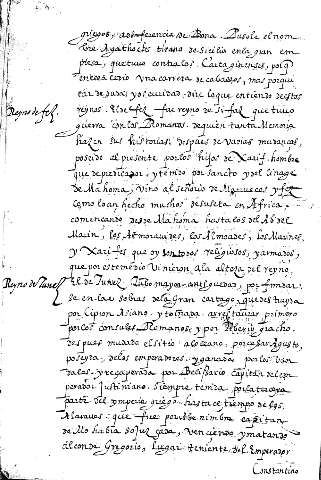 griegos, a diferencia de Bona. Pusole el nom
bre Agathocles tirano de Sicilia en la gran em
presa, que tuvo contra los Cartagineses, porq
en tierra
una carrera de cavallos, mas porque
tar de
y oscuridad, dire lo que entiendo destos
Reyno de fez
reynos. El de fez fue reyno de Sifaz que tuvo
guerra con los Romanos de quien tanta Memoria
hazen sus historias, despues de varias mudanças,
poseido al presente por los hijos de Xarif, hombre
que de predicador, y tenido por sancto y del linage
de Mahoma, vino al señorio de Marruecos y fez
como lo an hecho muchos de su seta en Africa
comencando desde Mahoma hasta los
del
Marin, los Almoravides, los Almoades, los Marines,
y Xarifes que oy son todos religiosos, y armados,
que por este medio vinieron a la alteza del reyno,
Reyno de Tunez
El de Tunez tubo mayor antiguedad, por fundar
se en las sobras de la Gran Cartago, que destruyda
por Cipion
y tornada a restaurar primero
por los consules Romanos, y por Tiberio gracho.
despues mudado el sitio al oceano, por cesar Agusto,
poseyda, de los emperadores, y ganada por los van
dalos, y recuperada por Belisario capitan del em
perador Justiniano. siempre tenida por la tercera
parte del ymperio griego hasta el tiempo de los
Alaraves: que fue por
nimbre capitan
de Mahoma
vençiendo y matando
al conde Gregorio, Lugar teniente del Emperador
Constantino